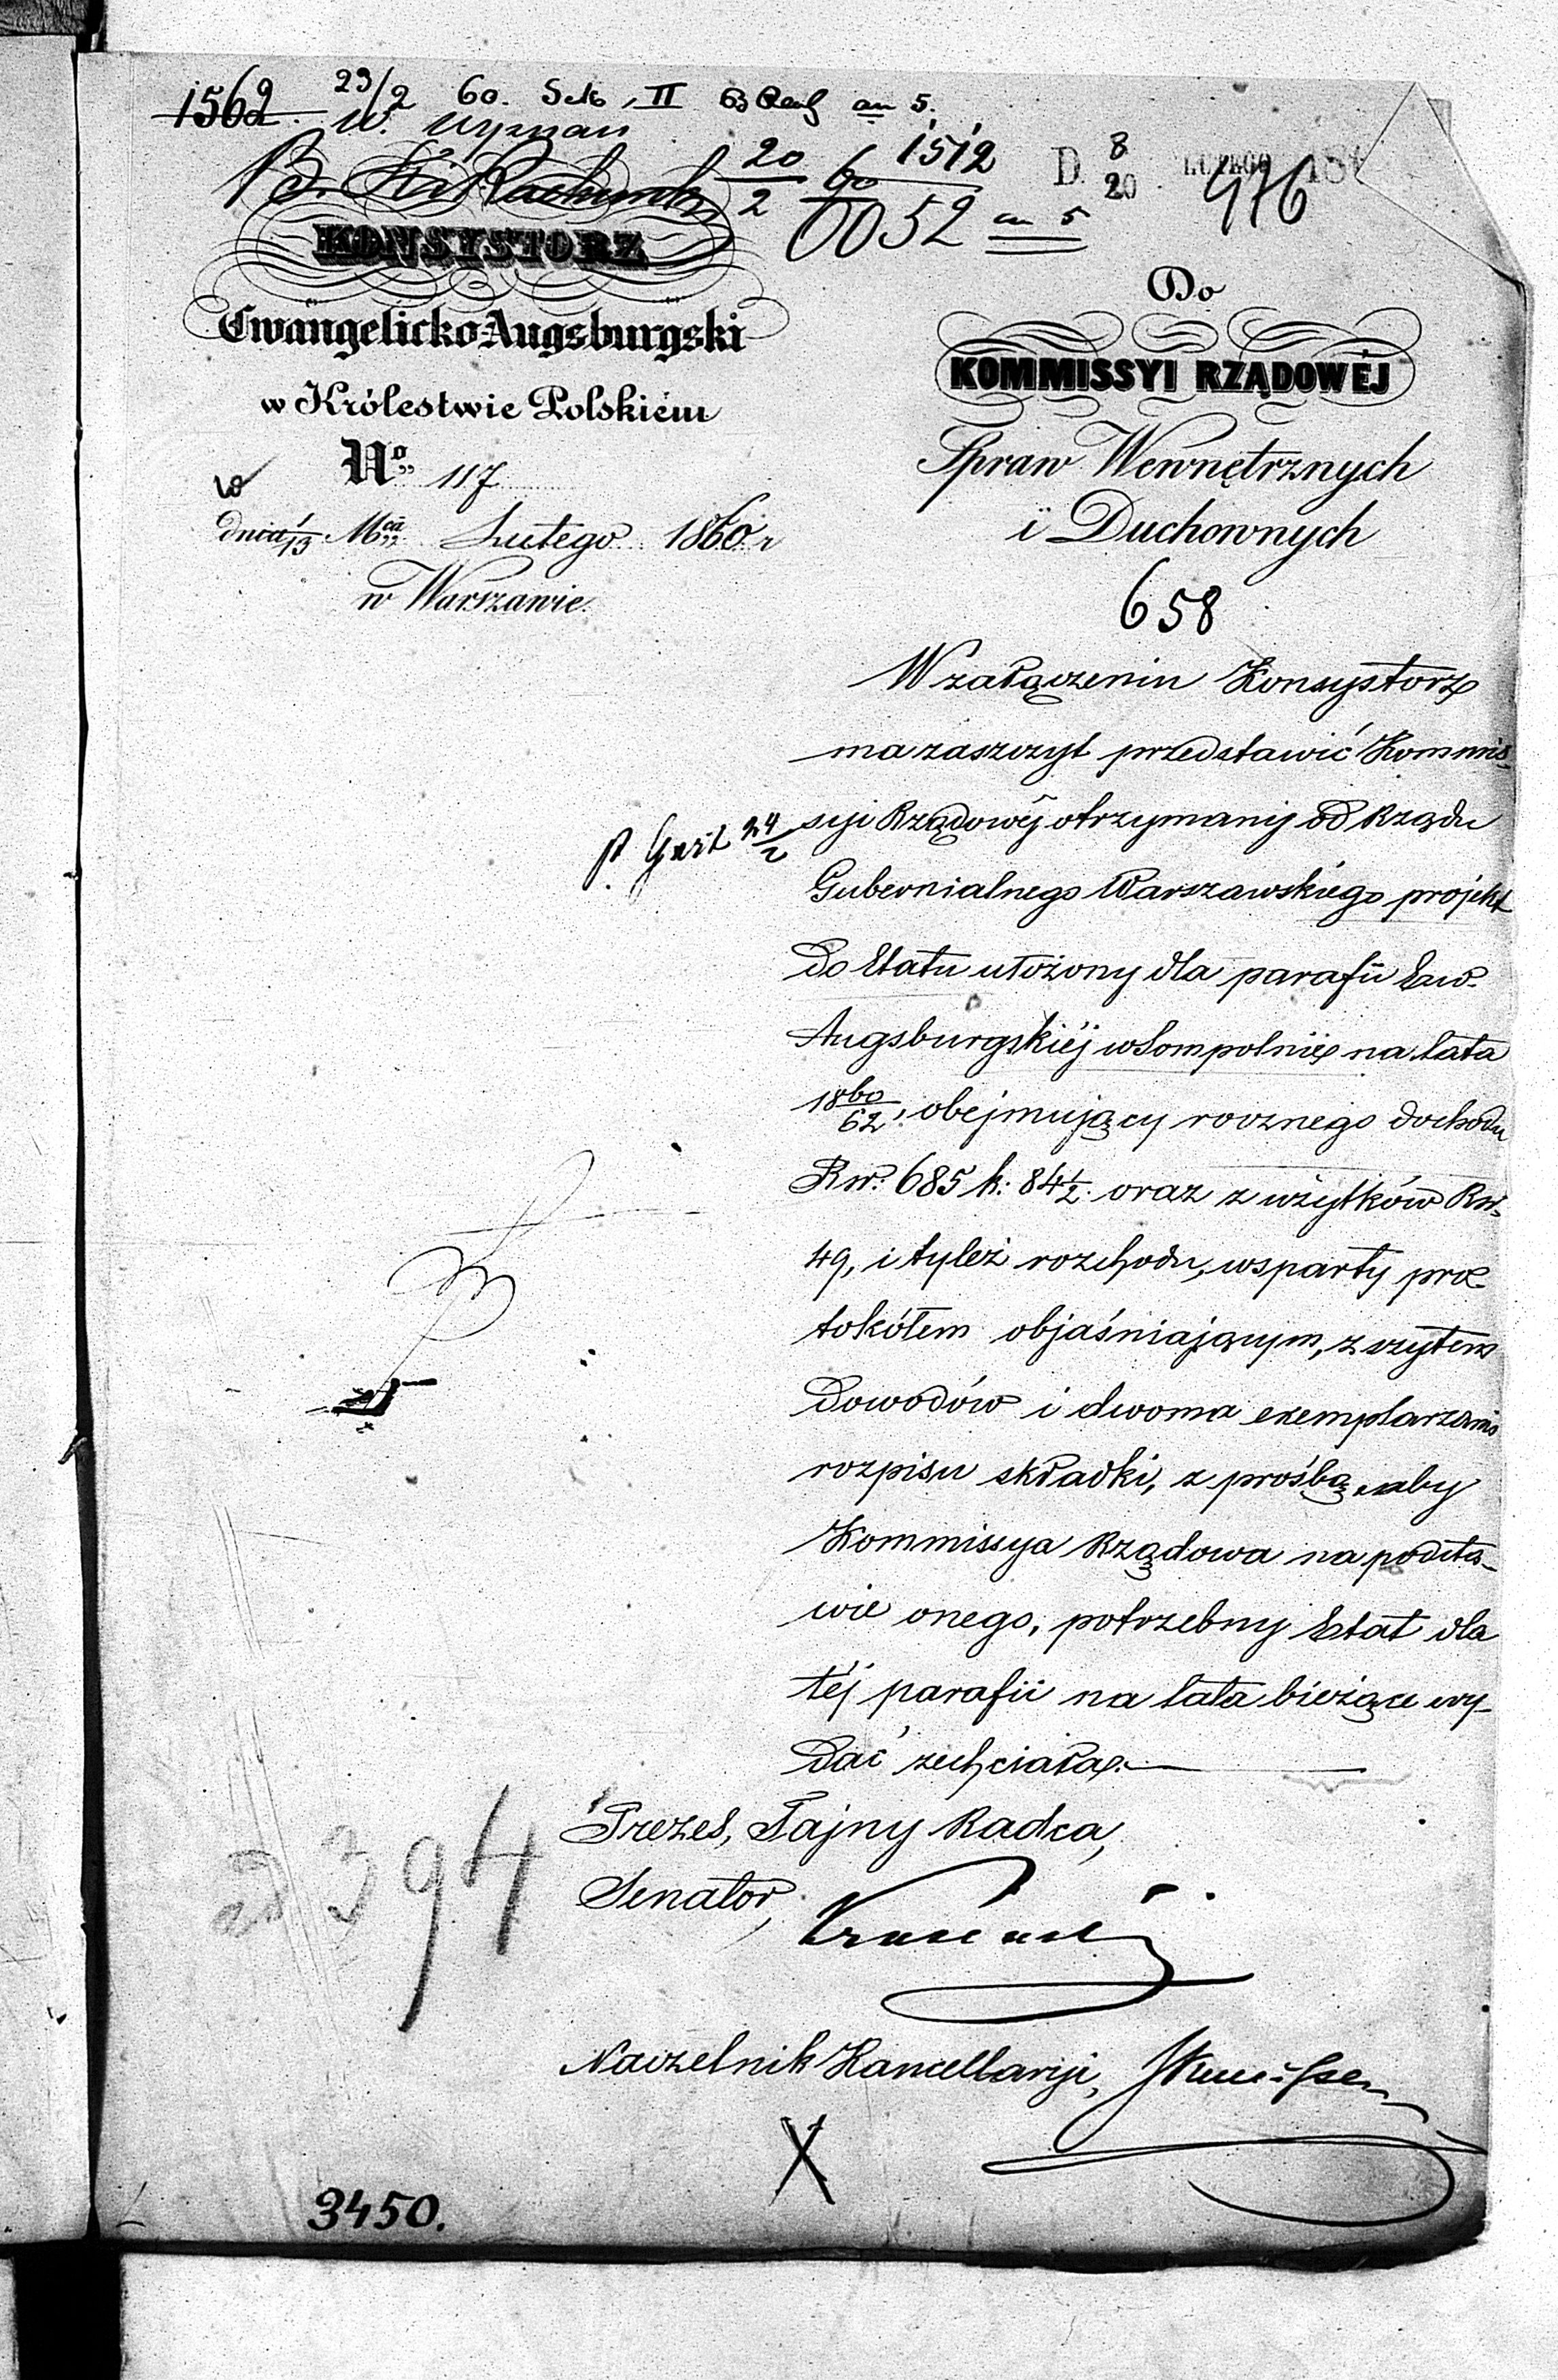 1562. 23/2 60. Sek. II an 5.
20/2 60 1512
D. 8/20 LUTEGO 186
976
52 an 5
KONSYSTORZ
Ewangelicko-Augsburgski
w Królestwie Polskiém
No 117
dnia 1/13 Mca Lutego 1860 r
w Warszawie.
Do
KOMMISSYI RZĄDOWÉJ
Spraw Wewnętrznych
i Duchownych
658
W załączeniu Konsystorz
ma zaszczyt przedstawić Kommis-
syi Rządowéj otrzymany od Rządu
24/2
Gubernialnego Warszawskiego projekt
do Etatu ułożony dla parafii Ew.
Augsburgskiéj w Sompolnie na lata
1860/62, obejmujący rocznego dochodu
Rsr. 685 k: 84½ oraz z użytków Rsr.
49, i tyleż rozchodu, wsparty pro-
tokółem objaśniającym, z szytem
dowodów i dwoma exemplarzami
rozpisu składki, z prośbą, aby
Kommissya Rządowa na podsta-
wie onego, potrzebny Etat dla
téj parafii na lata bieżące wy-
dać zechciała.
Prezes, Tajny Radca,
Senator,
ad 394
Naczelnik Kancellaryi,
X
3450.